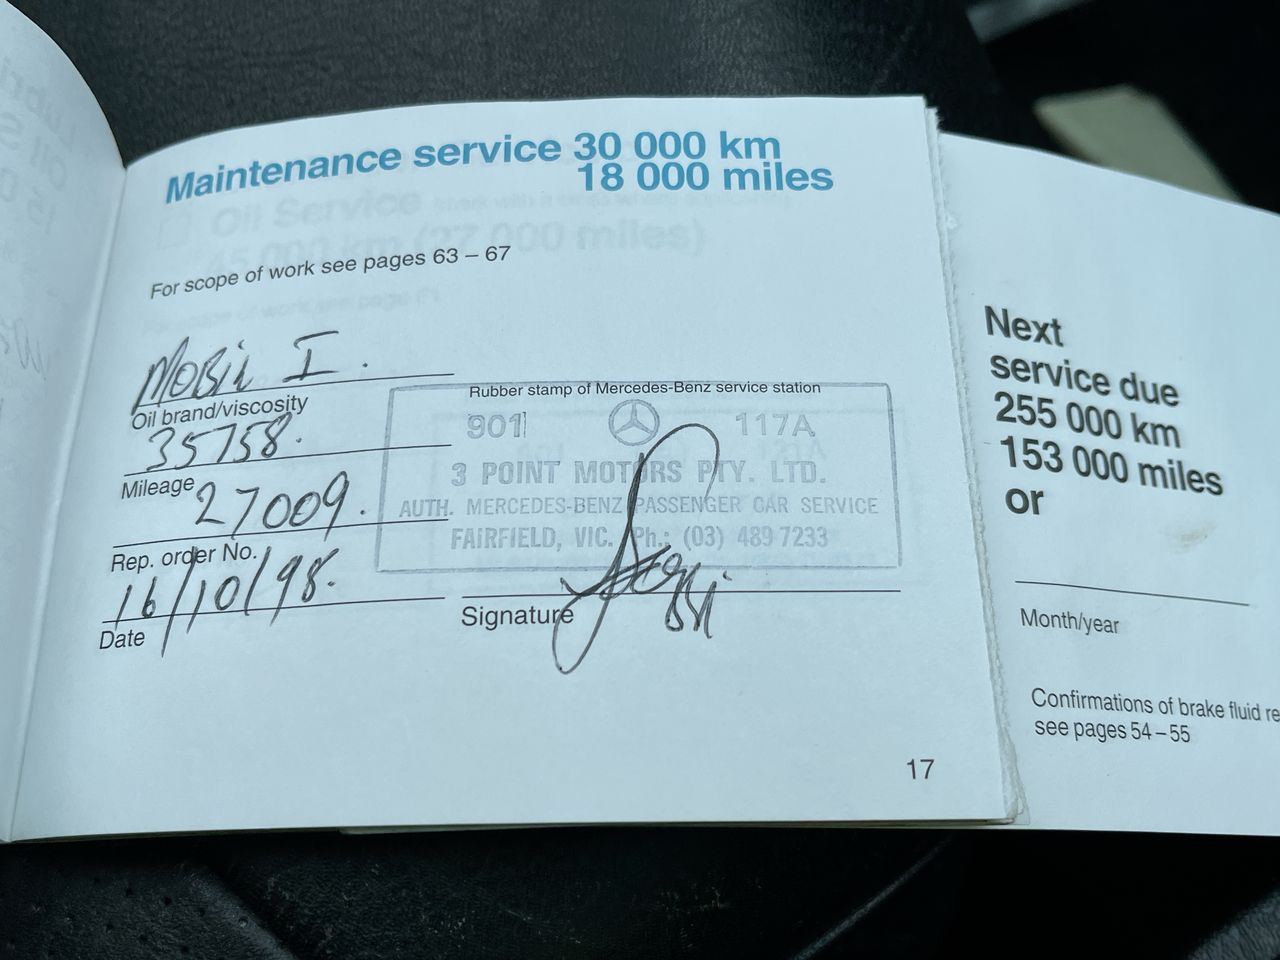 Maintenance service 30 000 km
18 000 miles
For scope of work see pages 63 – 67
Mobil I.
Oil brand/viscosity
35758.
Mileage
27009.
Rep. order No.
16/10/98.
Date
Rubber stamp of Mercedes-Benz service station
901 117A
3 POINT MOTORS PTY. LTD.
AUTH. MERCEDES-BENZ PASSENGER CAR SERVICE
FAIRFIELD, VIC. Ph.: (03) 489 7233
Signature
17
Next
service due
255 000 km
153 000 miles
or
Month/year
Confirmations of brake fluid re
see pages 54 – 55